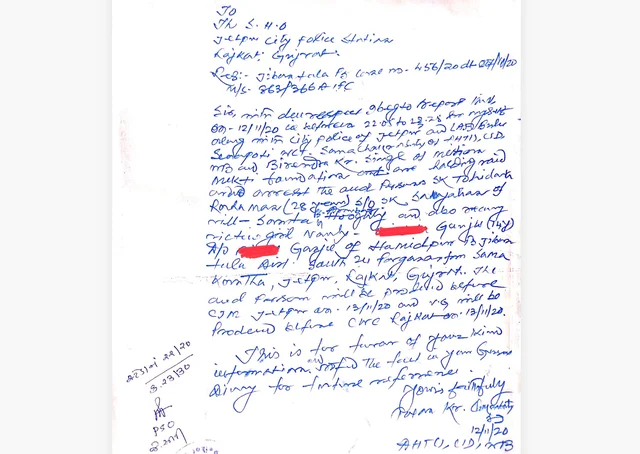 To
The S.H.O
Jetpur City Police Station
Rajkot, Gujrat.
Ref:- Jibantala PS Case no. 456/20 dt
U/s- 363/366A IPC
Sir, with due respect I beg to report that
on- 12/11/20 in between 22.05 to 23.25 hrs myself
along with City Police of Jetpur and
W.C.T. Soma Chakraborty of AHTU, CID
WB and Birendra Kr. Singh of Mission
Mukti Foundation are held raid
and arrest the accd Persons SK Tohidar
Rahaman (28 years) S/O SK Sahajahan of
vill- Hooghly and also recovery
victim girl Namly-
D/O Gazi of Hamidpur PS Jiban
tula Dist. South 24 Parganas from Sama
Jetpur, Rajkot, Gujrat. The
accd Person will be produced before
CJM Jetpur on. 13/11/20 and v/g will be
Produced before CWC Rajkot on. 13/11/20.
This is for favour of your kind
information and noted the fact in your General
Diary for future reference.
Yours faithfully
Kr.
12/11/20
AHTU, CID, WB
22/20
23/30
PSO